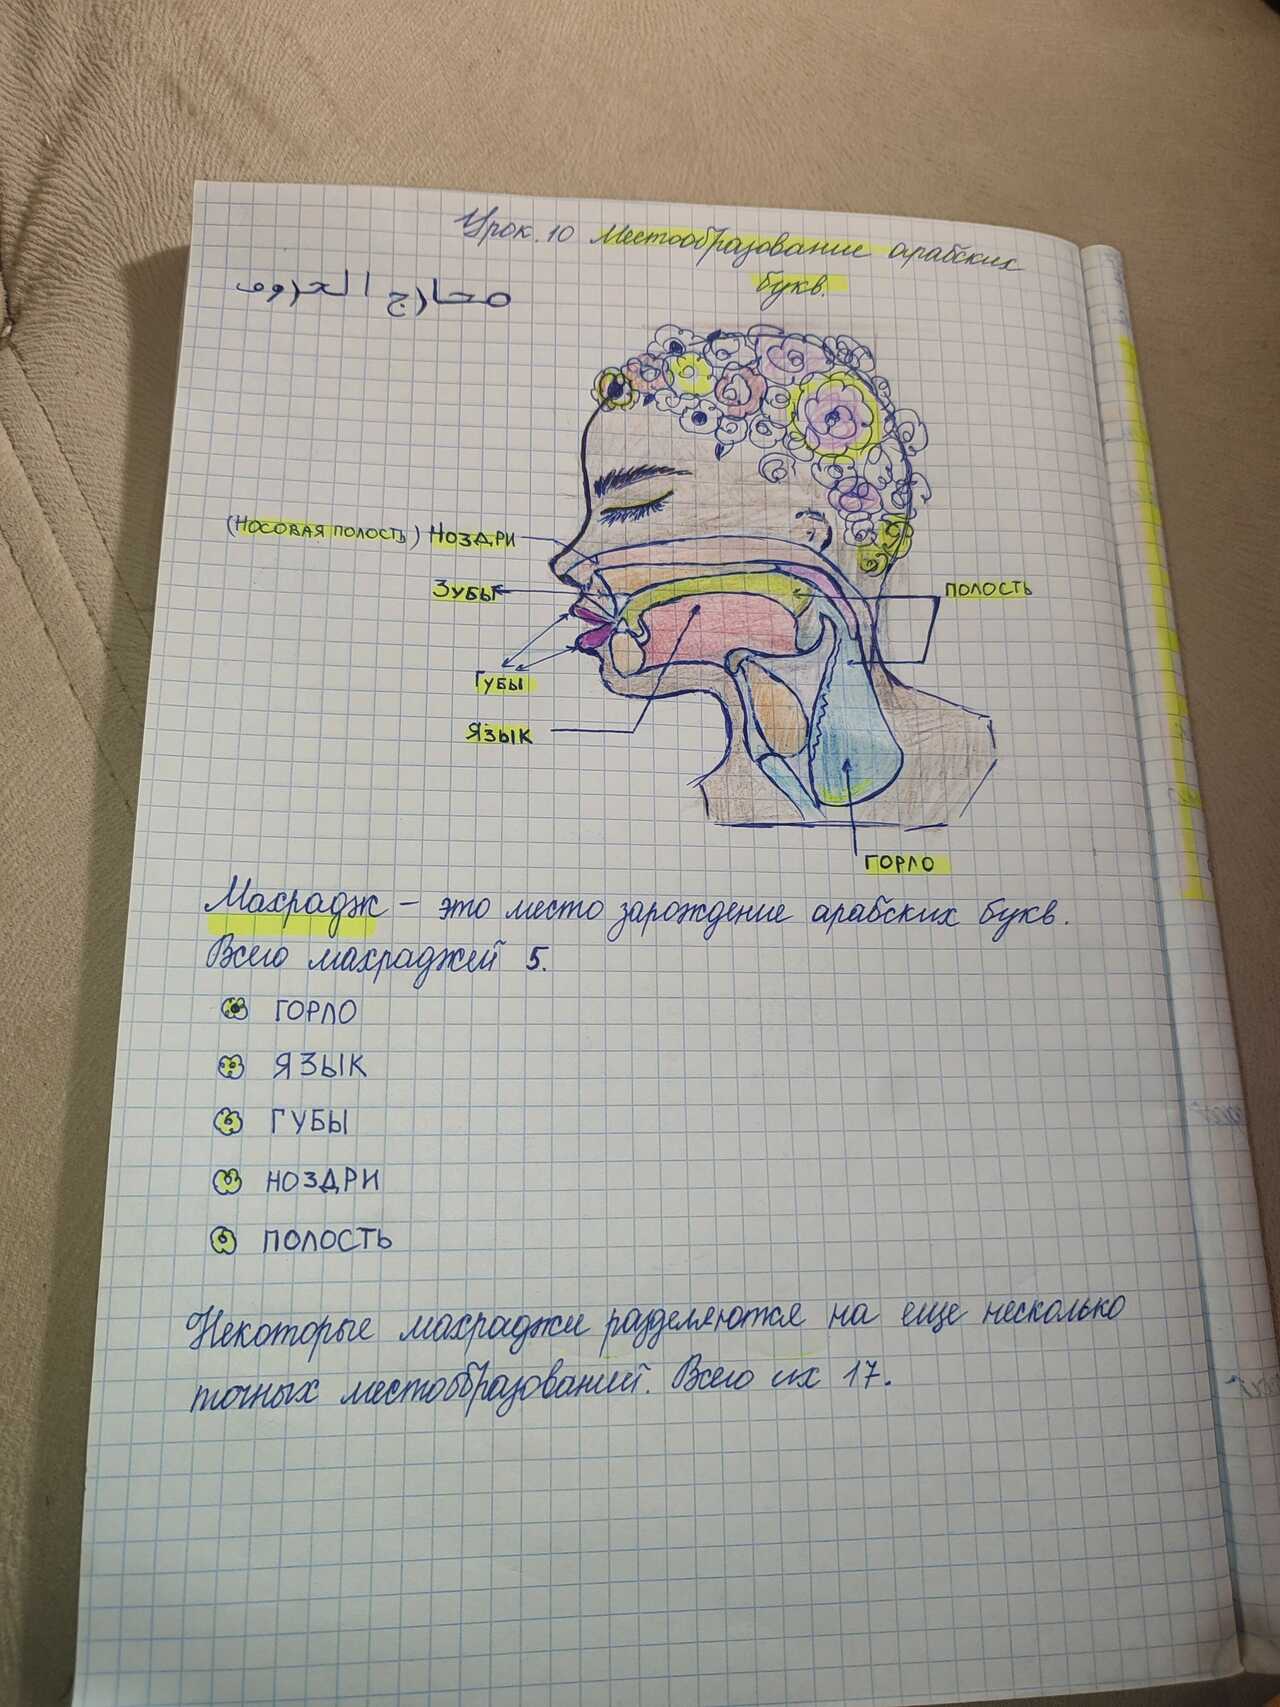 Урок. 10 Местообразование арабских
букв.
(НОСОВАЯ ПОЛОСТЬ) НОЗДРИ
ЗУБЫ
ПОЛОСТЬ
ГУБЫ
ЯЗЫК
ГОРЛО
Махрадж – это место зарождение арабских букв.
Всего махраджей 5.
ГОРЛО
ЯЗЫК
ГУБЫ
НОЗДРИ
ПОЛОСТЬ
Некоторые махраджи разделяются на еще несколько
точных местообразований. Всего их 17.